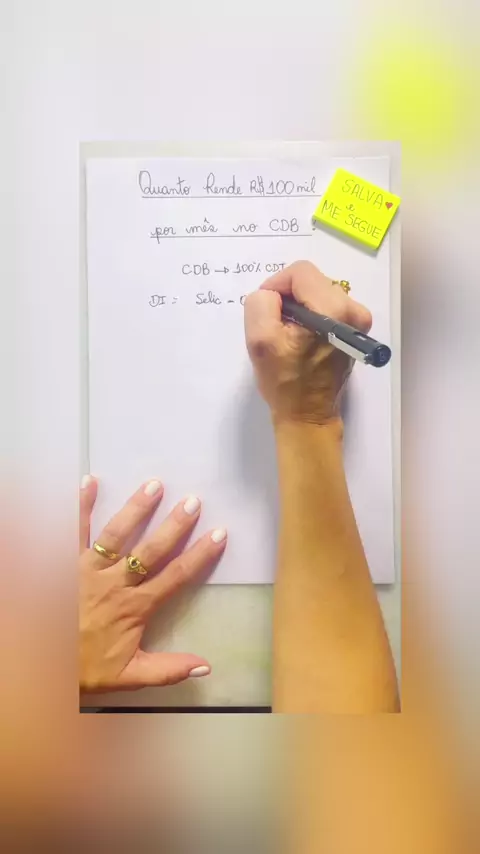 Quanto Rende R$100 mil
por mês no CDB?
SALVA
e
ME SEGUE
CDB → 100% CDI
DI = Selic - 0